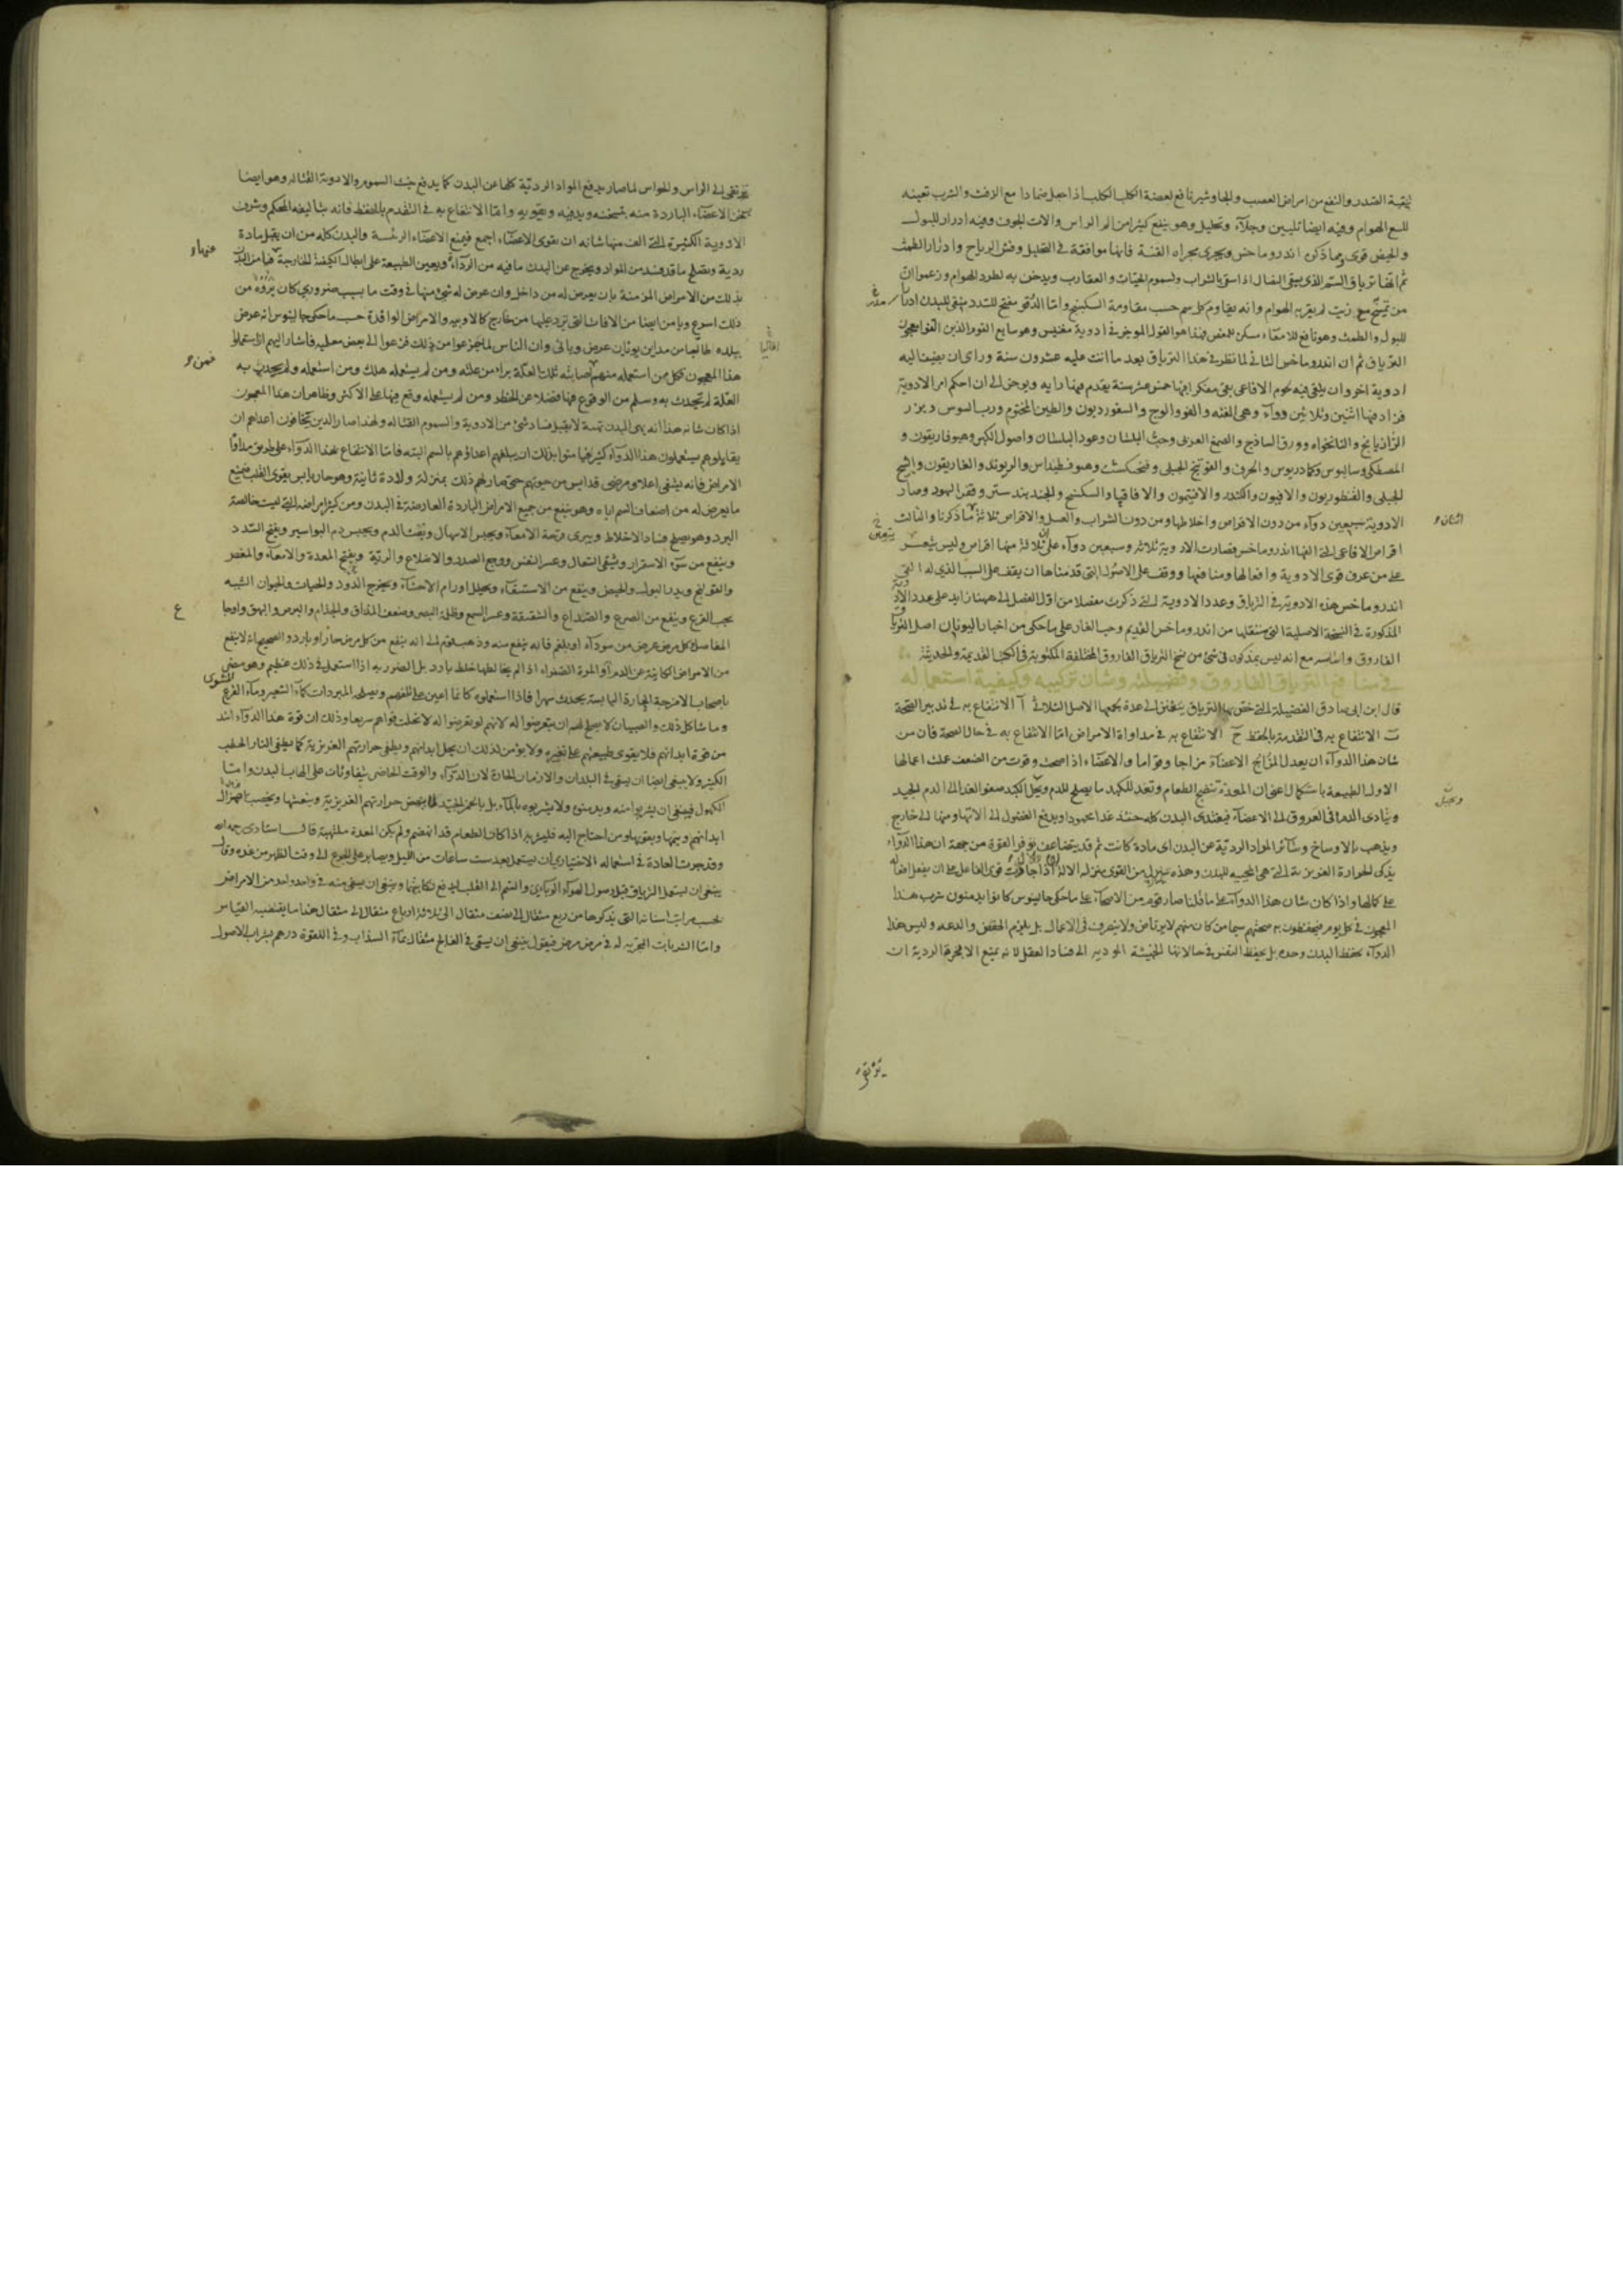 لتنقية الصدر والنفع من امراض العصب والجاوشير نافع لعضة الكلب الكلب اذا جعل ضمادا مع الزفت والشرب تعينه
للسع الهوام وفيه ايضا تليين وجلآء وتحليل وهو ينفع كثيرا من الم الراس والات الجوف وفيه ادرار للبول
والحيض قوى وما ذكره اندروماخس ويجرى مجراه القنة فانها موافقة فى التحليل وفش الرياح وادرار الطمث
ثم انها ترياق السم الذى يسقى النصال اذا سقى بالشراب ولسموم الحيات والعقارب ويدخن به لطرد الهوام وزعموا ان
من تمسح مع زيت لم يقربه الهوام وانه يقاوم كل سم حسب مقاومة السكبينج واما الدوقو مفتح للسدد منقى للبدن
للبول والطمث وهو نافع للامعآء مسكن للمغص فهذا هو القول الموجز فى ادوية مغنيس وهو سابع القوم الذين الفوا معجون
الترياق ثم ان اندروماخس الثانى لما نظر فى هذا الترياق بعد ما اتت عليه عشرون سنة وراى ان يضيف اليه
ادوية اخر وان يلقى فيه لحوم الافاعى بقى مفكرا فيها خمس عشر سنة يقدم فيها رايه ويوخر الى ان احكم امر الادوية
فزاد فيها اثنين وثلاثين دوآء وهى القنه والفو والوج والسقورديون والطين المختوم ورب السوس وبزر
الرازيانج والنانخواه وورق الساذج والصمغ العربى وحب البلسان وعود البلسان واصول الكبر وهيوفاريقون و
المصطكى وساليوس وكمادريوس والحرف والفوتنج الجبلى وفنجنكشت وهيوفسطيداس والريوند والغاريقون والشيح
الجبلى والقنطوريون والافيون والكندر والافتيمون والاقاقيا والسكبينج والجندبيدستر وقفر اليهود وصار
الادوية سبعين دوآء من دون الاقراص واخلاطها ومن دون الشراب والعسل والاقراص ثلاثة ما ذكرنا والثالث
اقراص الافاعى التى الفها اندروماخس فصارت الادوية ثلاثة وسبعين دوآء على ان ثلاثة منها اقراص وليس يتعسر
على من عرف قوى الادوية وافعالها ومنافعها ووقف على الاصول التى قدمناها ان يقف على السبب الذى له القى
اندروماخس هذه الادوية فى الترياق وعدد الادوية التى ذكرت مفصلا من اول الفصل الى ههنا زايد على عدد الادوية
المذكورة فى النسخة الاصلية التى سننقلها من اندروماخس القديم وحب الغار على ما حكى من اخبار اليونان اصل الترياق
الفاروق واساسه مع انه ليس بمذكور فى شئ من نسخ الترياق الفاروق المختلفة المكتوبة فى الكتب القديمة والحديثة
فى منافع الترياق الفاروق وفضيلته وشان تركيبه وكيفية استعماله
قال ابن ابى صادق الفضيلة التى خص بها الترياق يتفنن الى عدة يجمعها الاصل الثلاثى آ الانتفاع به فى تدبير الصحة
ب الانتفاع به فى التقدمة بالحفظ ج الانتفاع به فى مداواة الامراض اما الانتفاع به فى حال الصحة فان من
شان هذا الدوآء ان يعدل المزاج الاعضآء مزاجا وقواما والاعضآء اذا صحت وقويت من الضعف عملت اعمالها
الاول الطبيعية باستكمال اعنى ان المعدة تنضج الطعام وتعد للكبد ما يصلح للدم وتحيل الكبد صفو الغذا الى الدم الجيد
ويتادى الدم فى العروق الى الاعضآء فيغتذى البدن كله حينئذ غذا محمودا ويدفع الفضول الى الاتها ومنها الى خارج
ويذهب بالاوساخ وسآئر المواد الردية عن البدن اى مادة كانت ثم قد يتضاعف توفر القوة من جهة ان هذا الدوآء
يذكى الحرارة الغريزية التى هى المحييه للبدن وهذه تنزل من القوى بمنزلة الالة
على كمالها واذا كان شان هذا الدوآء على ما قلنا صار قوم من الاصحآء على ما حكى جالينوس كانوا يدمنون شرب هذا
المعجون فى كل يوم فيحفظون به صحتهم سيما من كان منهم لا يرتاض ولا يتصرف فى الاعمال بل يلزم الخفض والدعه وليس هذا
الدوآء يحفظ البدن وحده بل يحفظ النفس فى حالاتها الخبيثة المودية الى فساد العقل لانه يمنع الابخرة الردية ان
ترتقى
ترتقى الى الراس والحواس لما صار يدفع المواد الردية كلها عن البدن كما يدفع خبث السموم والادوية القتاله وهو ايضا
يسخن الاعضآء الباردة منه بتسخينه ويدفيه وتقويه واما الانتفاع به فى التقدم بالحفظ فانه بتاليفه المحكم وشرف
الادوية الكثيرة التى الف منها شانه ان يقوى الاعضآء اجمع فيمنع الاعضآء الرئسة والبدن كله من ان يقبل مادة
ردية ويصلح ما قد فسد من المواد ويخرج عن البدن ما فيه من الردآءة ويعين الطبيعة على ابطال الكيفية الخارجة
ذلك من الامراض المزمنة بان يعرض له من داخل وان عرض له شئ منها فى وقت ما بسبب ضرورى كان بروه من
ذلك اسرع ويامن ايضا من الافات التى ترد عليها من خارج كالاوبيه والامراض الوافدة حسب ما حكى جالينوس انه عرض
ببلده من مداين يونان عرض وبائى وان الناس لما جزعوا من ذلك فزعوا الى بعض معلميه فاشار اليهم باستعمال
هذا المعجون فكل من استعمله منهم اصابته تلك العلة برا من علته ومن لم يستعمله هلك ومن استعمله ولم يحدث به
العلة لم تحدث به وسلم من الوقوع فيها فضلا عن الخطر ومن لم يستعمله وقع فيها على الاكثر وظاهر ان هذا المعجون
اذا كان شانه هذا انه يهيى البدن تهية لا يقبل فساد شئ من الادوية والسموم القتاله ولهذا صار الذين يخافون اعداهم ان
يقاتلوهم يستعملون هذا الدوآء كثيرا فيامنوا بذلك ان يبلغهم اعداؤهم بالسم البته فاما الانتفاع بهذا الدوآء على طريق مداواة
الامراض فانه يشفى اعلا ومرضى قد ايس من حيوتهم حتى صار لهم ذلك بمنزلة ولادة ثانية وهو حار يابس يقوى القلب
ما يعرض له من اضعاف السم اياه وهو ينفع من جميع الامراض الباردة العارضة فى البدن ومن كثير امراضه التى ليست خالصة
البرد وهو يصلح فساد الاخلاط ويبرى قرحة الامعآء ويحبس الاسهال ونفث الدم ويحبس دم البواسير ويفتح السدد
وينفع من سوء الاستمرآء ويشفى السعال وعسر النفس ووجع الصدر والاضلاع والرية وينفخ المعدة والامعآء والمغص
والقولنج ويدر البول والحيض وينفع من الاستسقآء ويحلل اورام الاحشآء ويخرج الدود والحيات والحيوان الشبيه
بحب القرع وينفع من الصرع والصداع والشقيقة وعسر السمع وظلمة البصر وضعف المذاق والجذام والبرص والبهق واوجاع
المفاصل وكل مرض عرض من سودآء او بلغم فانه ينفع منه وذهب قوم الى انه ينفع من كل مرض حار او بارد والصحيح انه لا ينفع
من الامراض الكاينة عن الدم او المرة الصفراء اذا لم يخالطها خلط بارد بل الضرر به اذا استعمل فى ذلك عظيم وهو مضر
باصحاب الامزجة الحارة اليابسة يحدث سهرا فاذا استعملوه كانما اعين على انفسهم ويصلحه المبردات كمآء الشعير ومآء القرع
وما شاكل ذلك والصبيان لا يصلح لهم ان يتعرضوا له لانهم لو تعرضوا له لانحلت قواهم سريعا وذلك ان قوة هذا الدوآء اشد
من قوة ابدانهم فلا يقوى طبيعتهم على تغيره ولا يؤمن لذلك ان يحل ابدانهم ويطفى حرارتهم الغريزية كما يطفى النار الحطب
الكثير ولا ينبغى ايضا ان يسقى فى البلدان والازمان الحارة لان الدوآء والوقت الحاضر يتفاوتان على الهاب البدن واما
الكهول فينبغى ان يشربوا منه ويدمنوه ولا يشربوه بالمآء بل بالخمر الجيد لما ينهض حرارتهم الغريزية وينعشها
ابدانهم وينميها ويقويها ومن احتاج اليه فليشربه اذا كان الطعام قد انهضم ولم يكن المعدة ملتهبة قال استادى رحمه الله
وقد جرت العادة فى استعماله الاختيارى ان يستعمل بعد ست ساعات من الليل ويصابر على الجوع الى وقت الظهر من غده وقال
ينبغى ان يستعمل الترياق قبل وصول الهوآء الوبائى والسم الى القلب ليدفع نكايتها وينبغى ان يسقى منه فى واحد واحد من الامراض
بحسب مراتب اسنانه التى يذكرها من ربع مثقال الى نصف مثقال الى ثلاثة ارباع مثقال الى مثقال هذا ما يقتضيه القياس
واما الشربات المجربه له فى مرض مرض فيقول ينبغى ان يسقى فى الفالج مثقال بمآء السذاب وفى اللقوة درهم بشراب الاصول